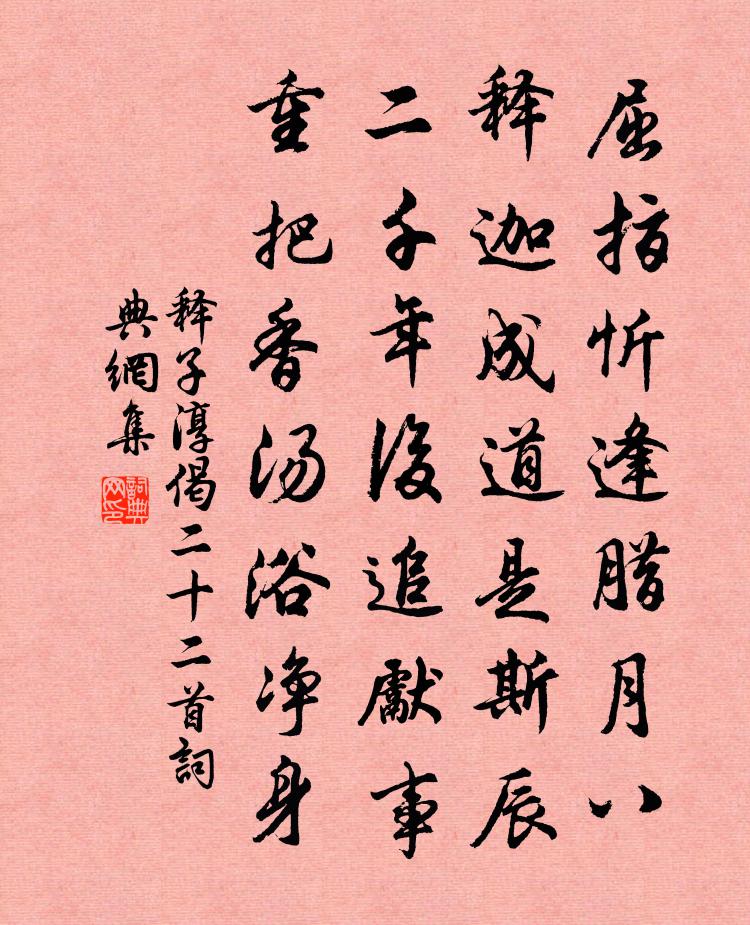 屈指忻逢腊月八
释迦成道是斯辰
二千年後追獻事
重把香汤浴净身
释子淳偈二十二首詞
典網集
詞典
网印